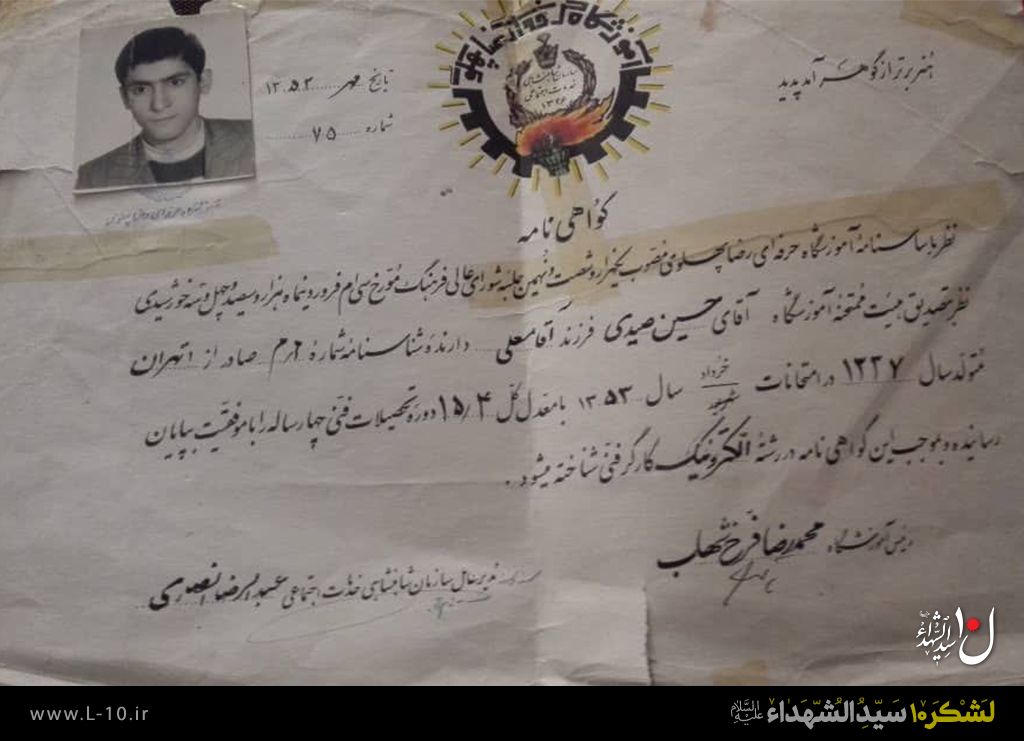 آموزشگاه حرفه‌ای رضا پهلوی
سازمان شاهنشاهی
خدمات اجتماعی
۱۳۲۶
هنر برتر از گوهر آمد پدید
تاریخ مهر ۱۳۵۳
شماره ۷۵
گواهی نامه
نظر باساسنامهٔ آموزشگاه حرفه‌ای رضا پهلوی مصوب یکهزار و شصت و نُهمین جلسه شورای عالی فرهنگ مُورّخ سی‌ام فروردینماه هزار و سیصد و چهل و سه خورشیدی
نظر بتصدیق هیئت ممتحنهٔ آموزشگاه آقای حسین صیدی فرزند آقامعلی دارندهٔ شناسنامهٔ شمارهٔ صادر از تهران
مُتولّد سال ۱۳۳۷ در امتحانات خرداد شهریور سال ۱۳۵۳ با معدل کل ۱۵/۴ دورهٔ تحصیلات فنّی چهار ساله را با موفقیت بپایان
رسانیده و بموجب این گواهی نامه در رشتهٔ الکترونیک کارگر فنّی شناخته میشود.
رئیس آموزشگاه محمدرضا فرّخ شهاب
مدیر عامل سازمان شاهنشاهی خدمات اجتماعی عبدالرضا انصاری
ل۱۰ سیدالشهداء
www.L-10.ir
لَشْکَر۱۰ سَیّدُالشُّهَداءِ علیه‌السلام